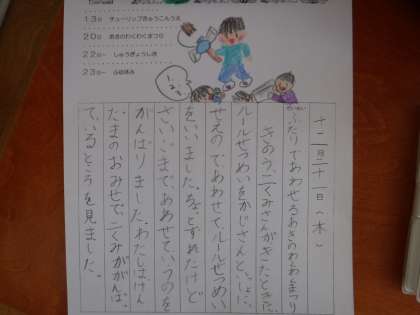 13日 チューリップきゅうこんうえ
20日 あきのわくわくまつり
22日～ しゅうぎょうしき
23日～ ふゆ休み
十二月二十一日(木)
ふたりであわせるあきのわくわくまつり
きのう、二くみさんがきたときに、
ルールせつめいをかじさんといっしょに、
せえので、あわせて、ルールせつめい
をいいました。
さいごまで、あわせていうのを
がんばりました。わたしはけん
だまのおみせで、二くみががんば
ているところを見ました。